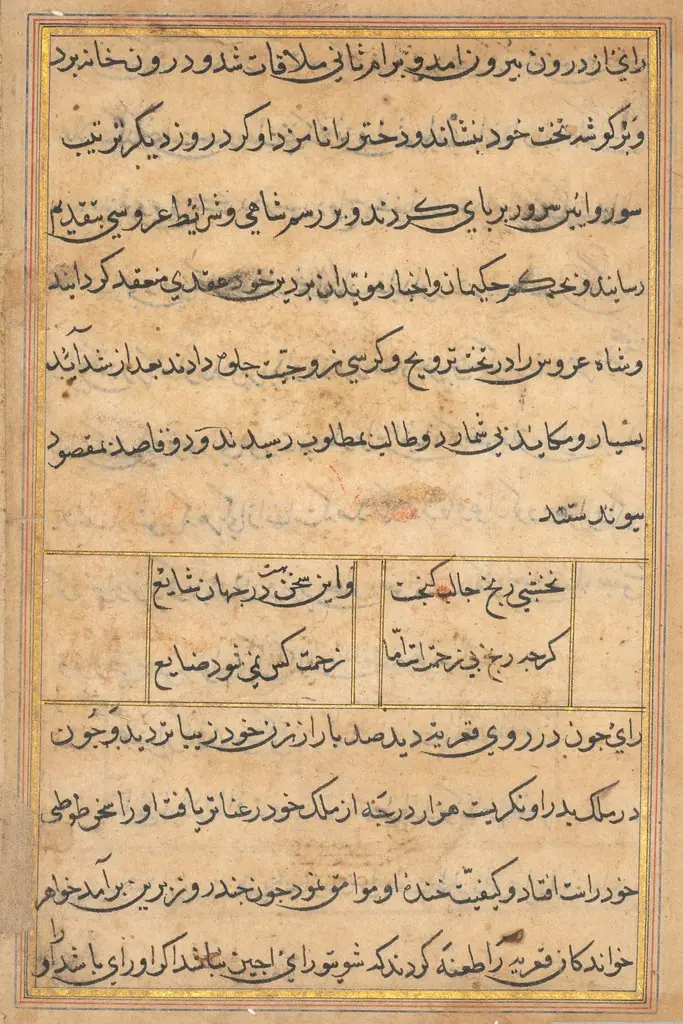 رای از درون بیرون امد و برام ثانی ملاقات شد و درون خانه برد
و بر گوشه تخت خود بنشاند و دختر را نامزد او کرد روز دیگر ترتیب
سور و ائین سرور بر پای کردند و بر رسم شاهی و شرائط عروسی بتقدیم
رسانیدند و بحکم حکیمان و اخبار مؤبدان بر دین خود عقدی منعقد کردانیدند
و شاه عروس را در تخت ترویج و کرسی زوجیت جلوه دادند بعد از شدائد
بسیار و مکاید بی شمار دو طالب بمطلوب رسیدند و دو قاصد بمقصود
پیوندستند
نخشبی رنج جالب کنجست
و این سخن هست در جهان شایع
کرجه رنج بی زحمت است امّا
زحمت کس نمی شود ضایع
رای جون در روی قعریه دید صد بار از زن خود زیباتر دید و جُون
در ملک پدر او نکریست هزار درجه از ملک خود رعناتر یافت او را سخن طوطی
خود راست افتاد و کیفیّت خنده او موافق نمود جون جند روز برین برآمد خواهر
خواندکان قعریه را طعنه کردند که شوی تو رای اجین نباشد اکر او رای باشد او را